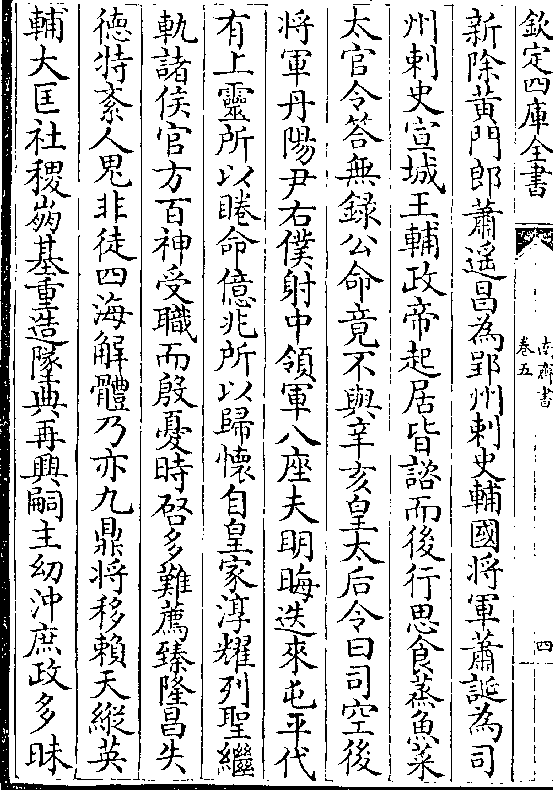 欽定四庫全書
南齊書
卷五
四
新除黃門郎蕭遥昌為郢州刺史輔國將軍蕭誕為司
州刺史宣城王輔政帝起居皆諮而後行思食蒸魚菜
太官令答無録公命竟不與辛亥皇太后令曰司空後
将軍丹陽尹右僕射中領軍八座夫明晦迭來屯平代
有上靈所以睠命億兆所以歸懷自皇家淳耀列聖繼
軌諸侯官方百神受職而殷憂時啓多難薦臻隆昌失
德特紊人鬼非徒四海解體乃亦九鼎将移賴天縱英
輔大匡社稷崩基重造墜典再興嗣主幼沖庶政多昧